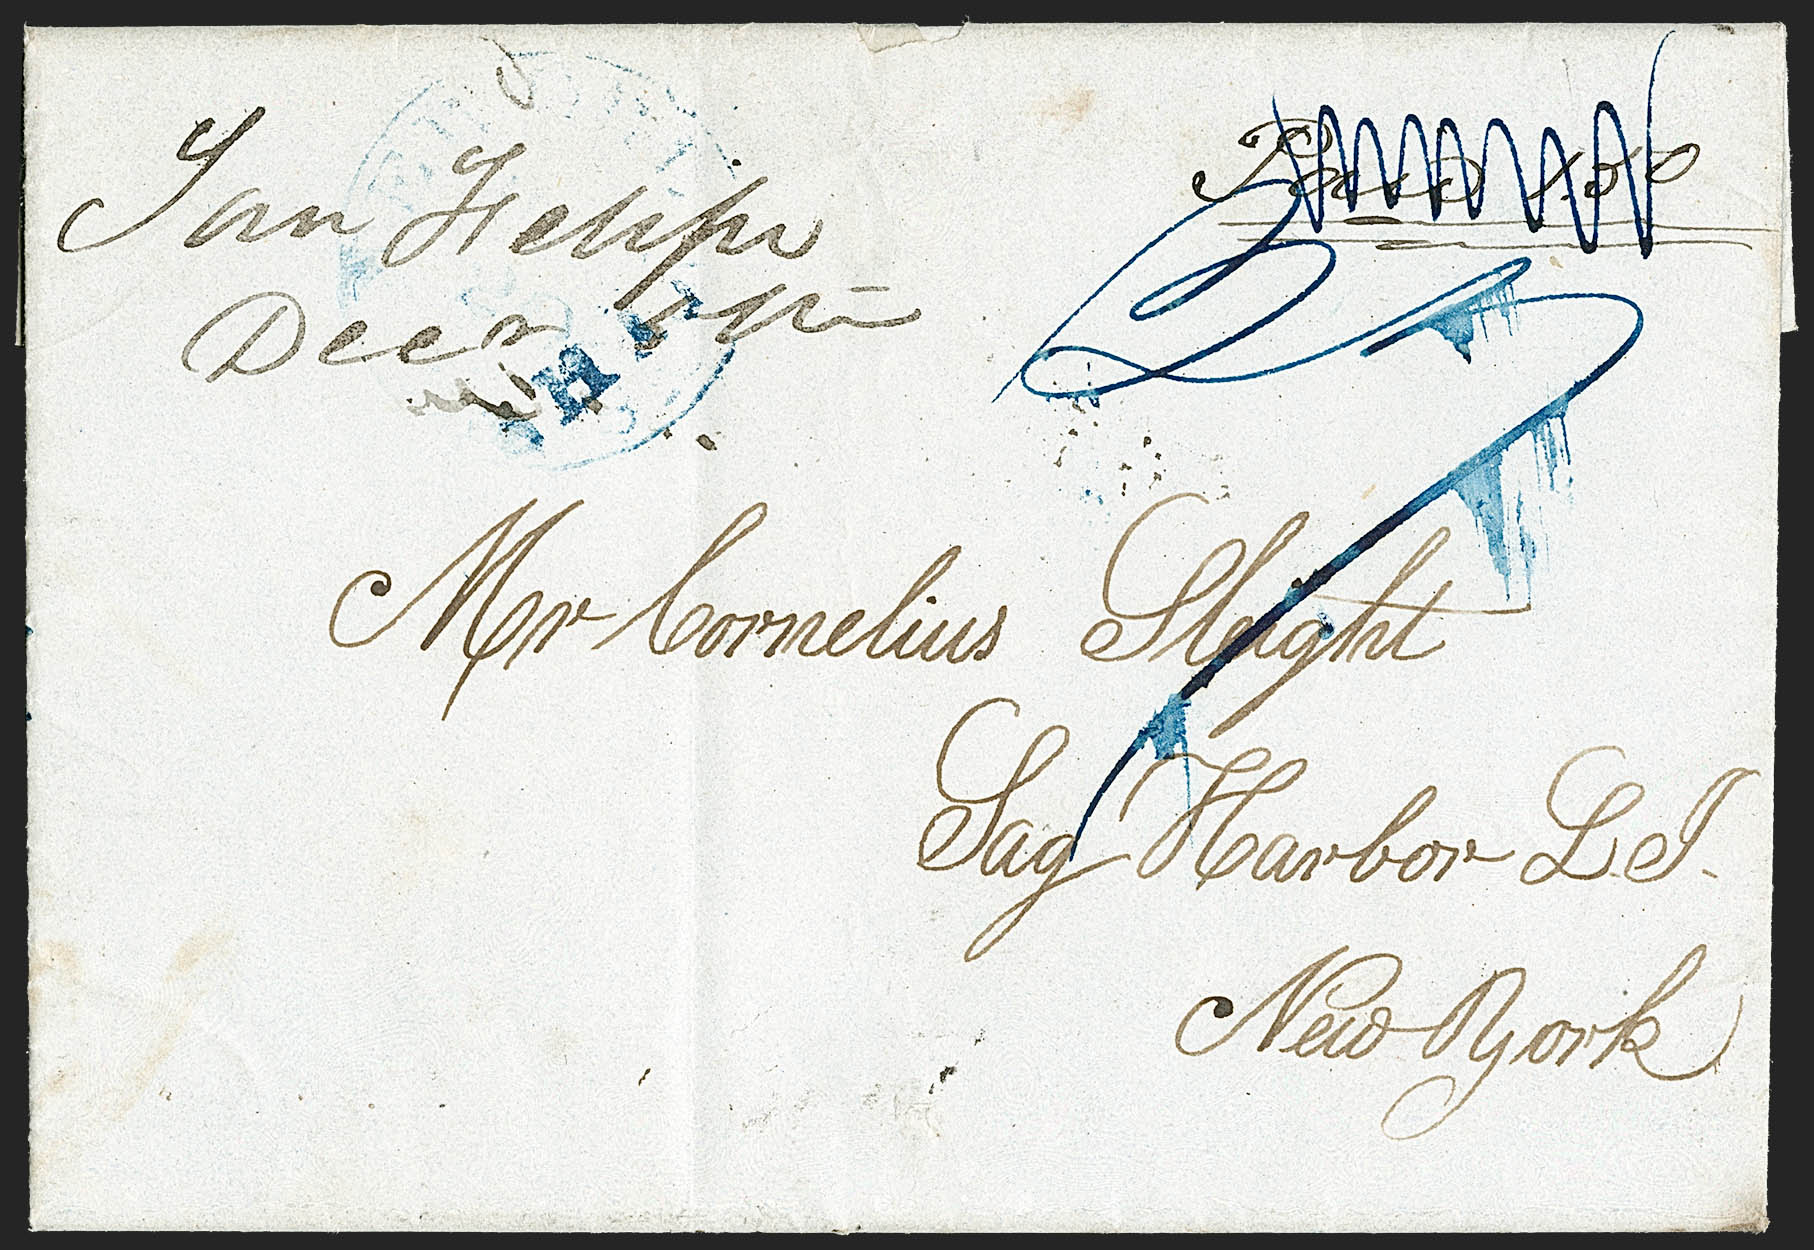 San Felipe
Decr 11th
Paid 150
Mr Cornelius Sleight
Sag Harbor L.I.
New York